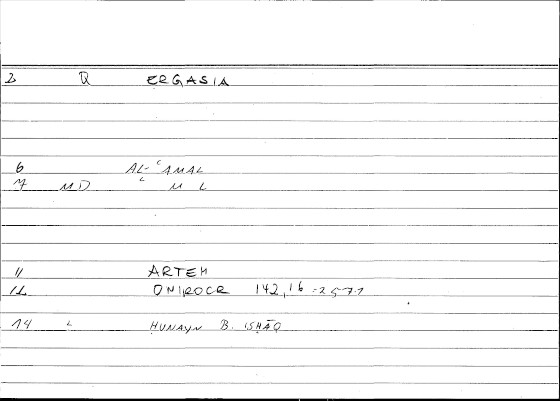 2 Q ERGASIA
6 AL-ʿAMAL
7 MD ʿ M L
11 ARTEM
12 ONIROCR 142,16 = 257.1
14 HUNAYN B. ISHĀQ